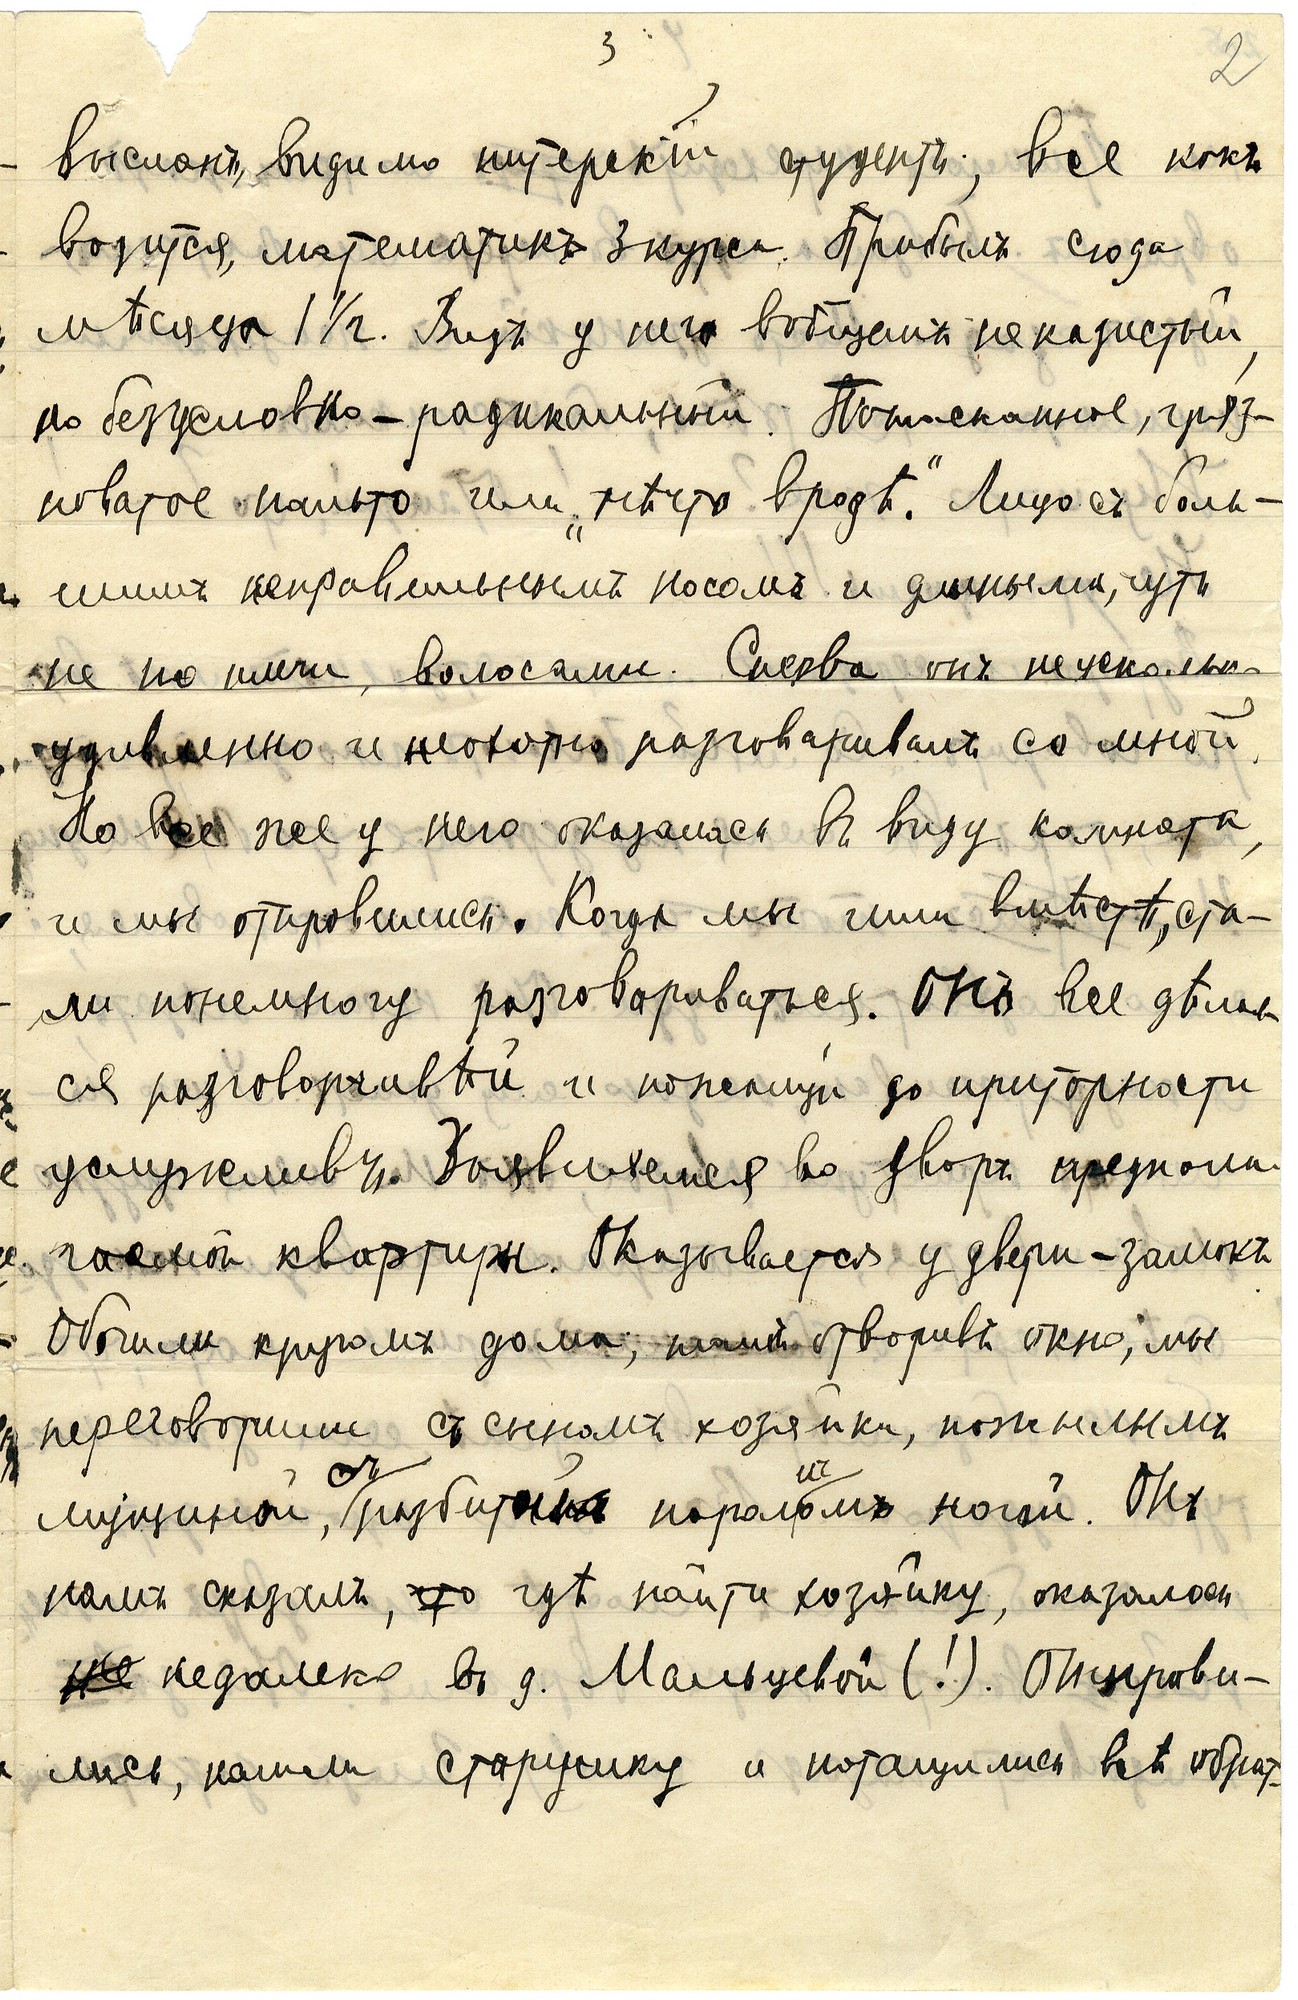 3
2
высланъ, видимо питерскій студентъ, все какъ
водится, математикъ 3 курса. Прибылъ сюда
мѣсяца 1 1/2. Видъ у него вобщемъ неказистый,
но безусловно – радикальный. Потасканное, гряз-
новатое пальто или „нѣчто вродѣ." Лицо съ боль-
шимъ неправильнымъ носомъ и длиными, чуть
не по плечи, волосами. Сперва онъ несколько
удивленно и неохотно разговаривалъ со мной.
Но все же у него оказалась въ виду комната,
и мы отправились. Когда мы шли вмѣстѣ, ста-
ли понемногу разговариваться. Онъ все дѣлал-
ся разговорчивѣй и пожалуй до приторности
услужливъ. Заявляемся во дворъ предпола-
гаемой квартиры. Оказывается у двери – замокъ
Обошли кругомъ дома, отворивъ окно, мы
переговорили съ сыномъ хозяйки, пожилымъ
мущиной, съ разбитой параличомъ ногой. Онъ
намъ сказалъ, что гдѣ найти хозяйку, оказалось
не недалеко въ д. Мальцевой (!). Отправи-
лись, нашли старушку и потащились всѣ обрат-